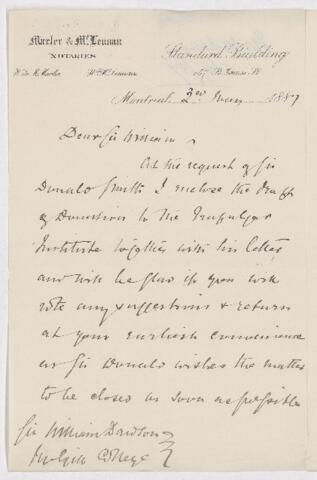 Marler & McLennan
NOTARIES
Standard Building
157 St James St
W. de M. Marler W. McLennan
Montreal, 3rd 1887
Dear Sir William,
At the request of Sir
Donald Smith I enclose the draft
of Donation to the Trafalgar
Institute together with his letter
and will be glad if you will
note any suggestions & return
at your earliest convenience
as Sir Donald wishes the matter
to be closed as soon as possible
Sir William Dawson
McGill College